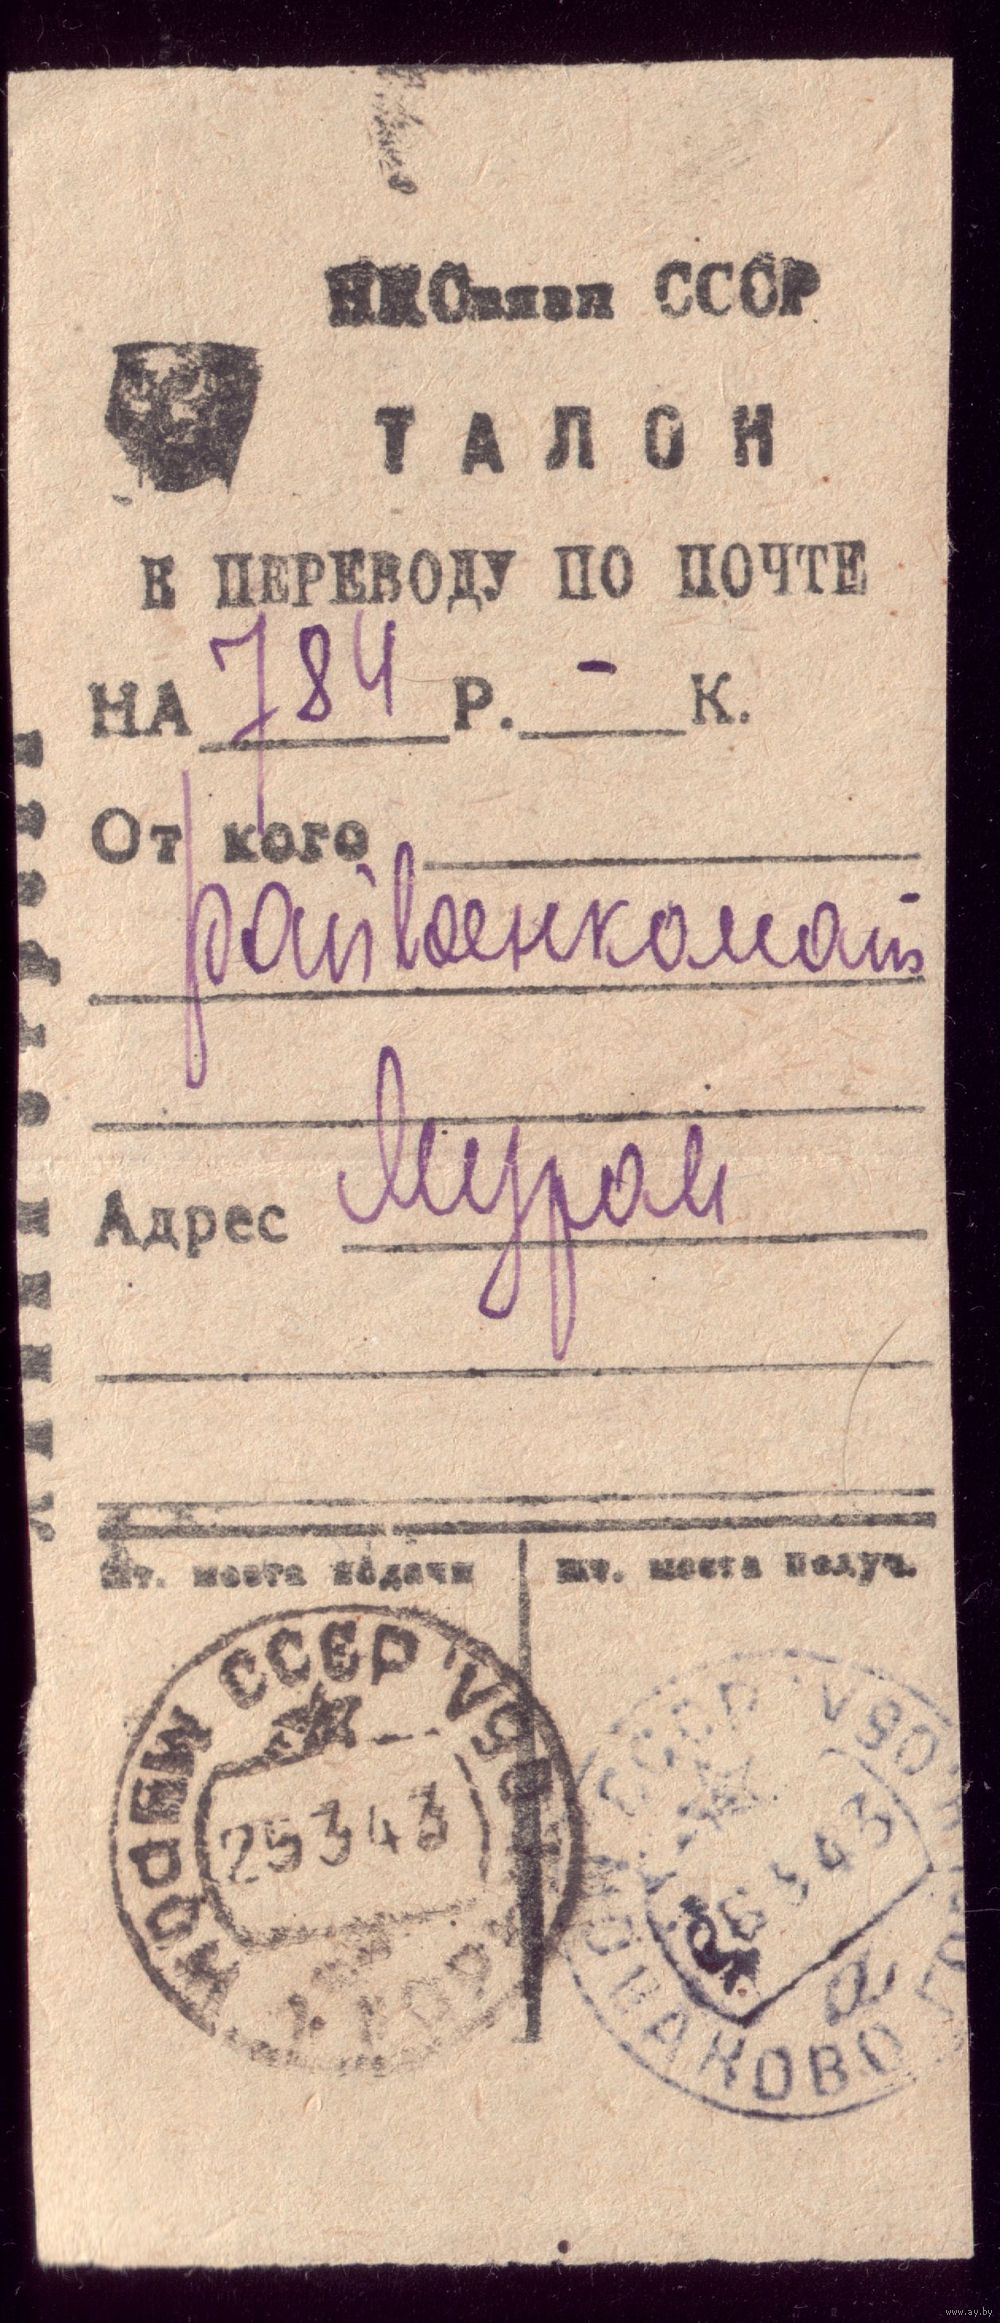 НКСвязи СССР
ТАЛОН
К ПЕРЕВОДУ ПО ПОЧТЕ
НА 784 Р. - К.
От кого
райвоенкомат
Адрес Муром
Шт. места подачи
Шт. места получ.
МУРОМ СССР ИВ ОБЛ.
25 3 43
СССР ИВ ОБЛ.
26 3 43
НОВАКОВО
а
www.ay.by